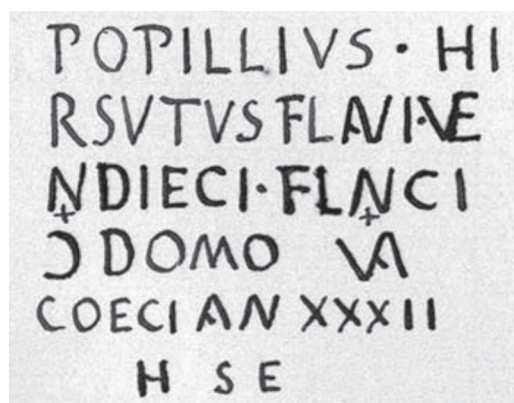 POPILLIVS · HI
RSVTVS FLAVI·VE
NDIECI·FLNCI
Ɔ DOMO VA
COECI AN XXXII
H S E